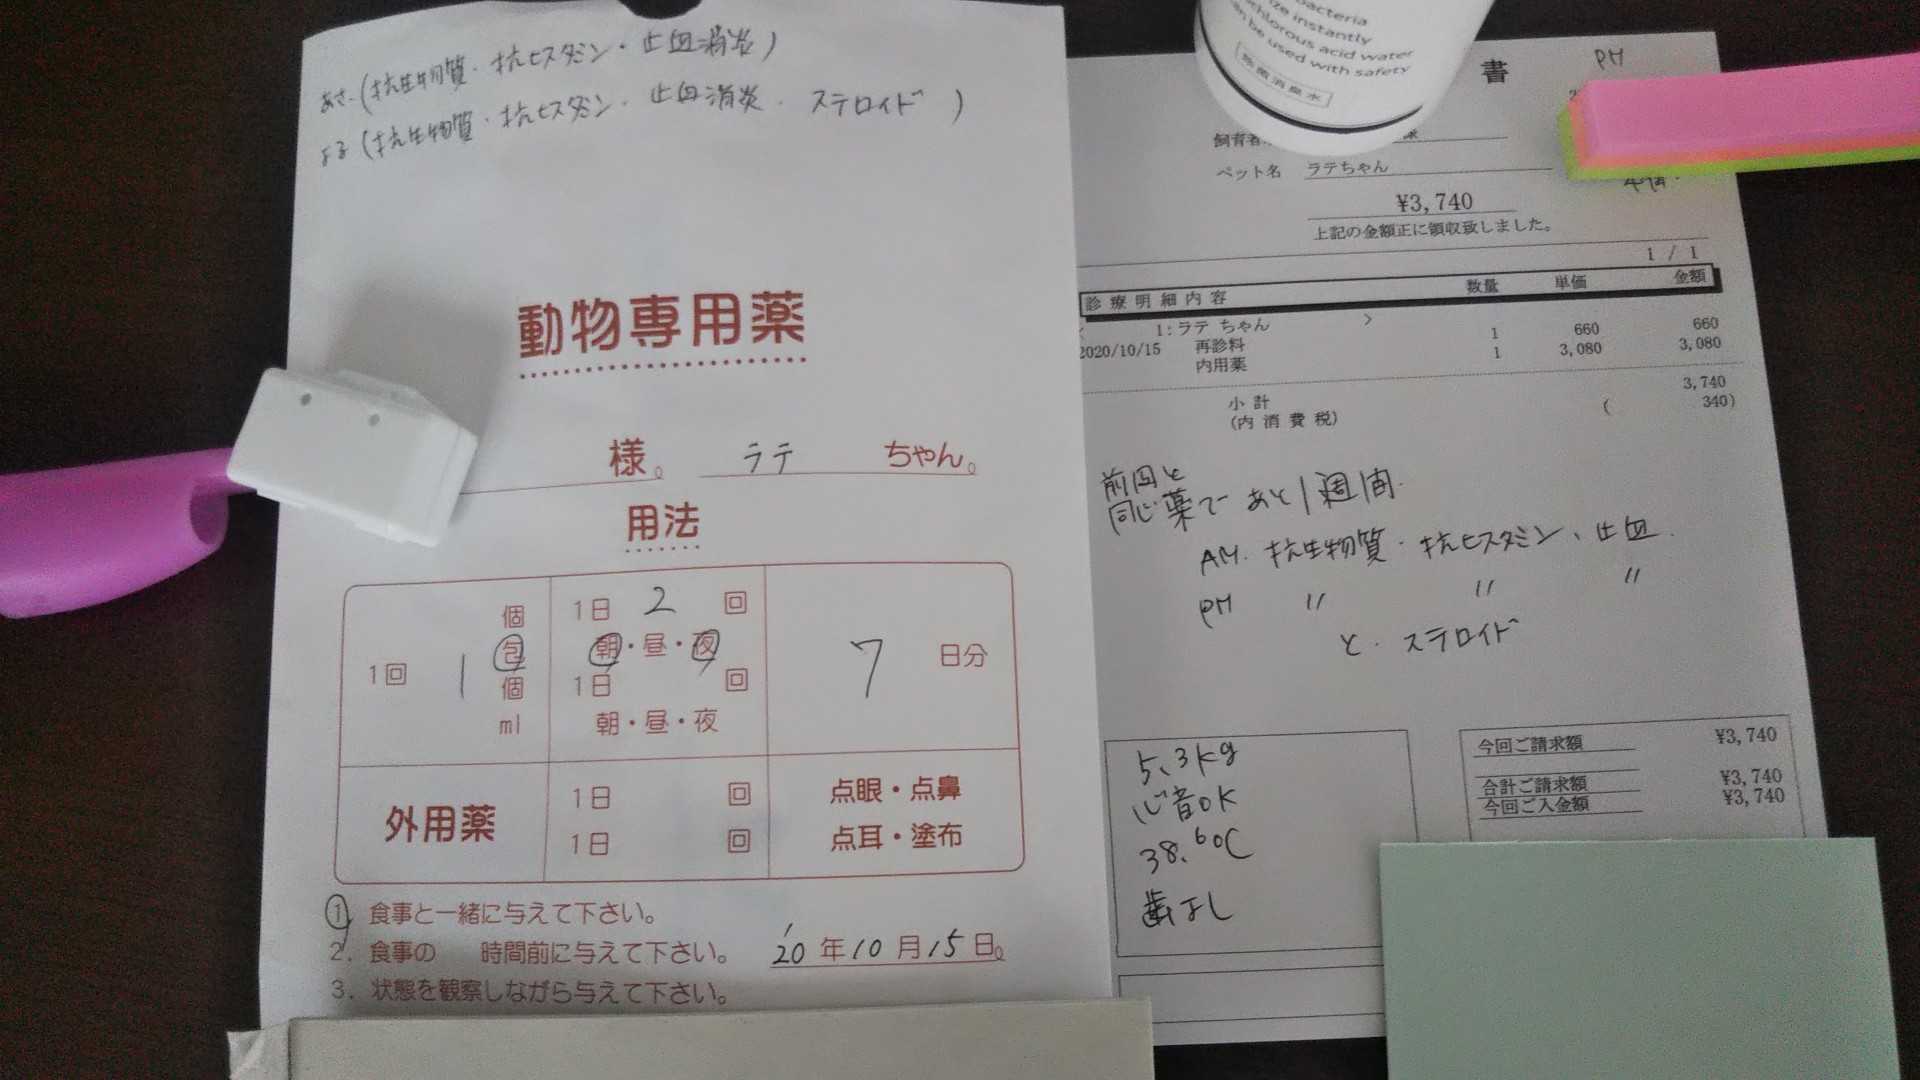 あさ(抗生物質・抗ヒスタミン・止血消炎)
よる(抗生物質・抗ヒスタミン・止血消炎・ステロイド)
動物専用薬
様。 ラテ ちゃん。
用法
1回 1 個 包 個 ml
1日 2 回
朝・昼・夜
1日 回
朝・昼・夜
7 日分
外用薬
1日 回
1日 回
点眼・点鼻
点耳・塗布
1. 食事と一緒に与えて下さい。
2. 食事の 時間前に与えて下さい。
3. 状態を観察しながら与えて下さい。
'20年10月15日。
bacteria
ze instantly
chlorous acid water
an be used with safety
除菌消臭水
書
PM
飼育者
様
ペット名 ラテちゃん
¥3,740
上記の金額正に領収致しました。
1 / 1
診療明細内容 数量 単価 金額
1:ラテ ちゃん >
2020/10/15 再診料 1 660 660
内用薬 1 3,080 3,080
小計 3,740
(内消費税) ( 340)
前回と
同じ薬で あと1週間.
AM. 抗生物質・抗ヒスタミン、止血.
PM 〃 〃 〃
と. ステロイド
5.3kg
心音OK
38.6℃
歯よし
今回ご請求額 ¥3,740
合計ご請求額 ¥3,740
今回ご入金額 ¥3,740